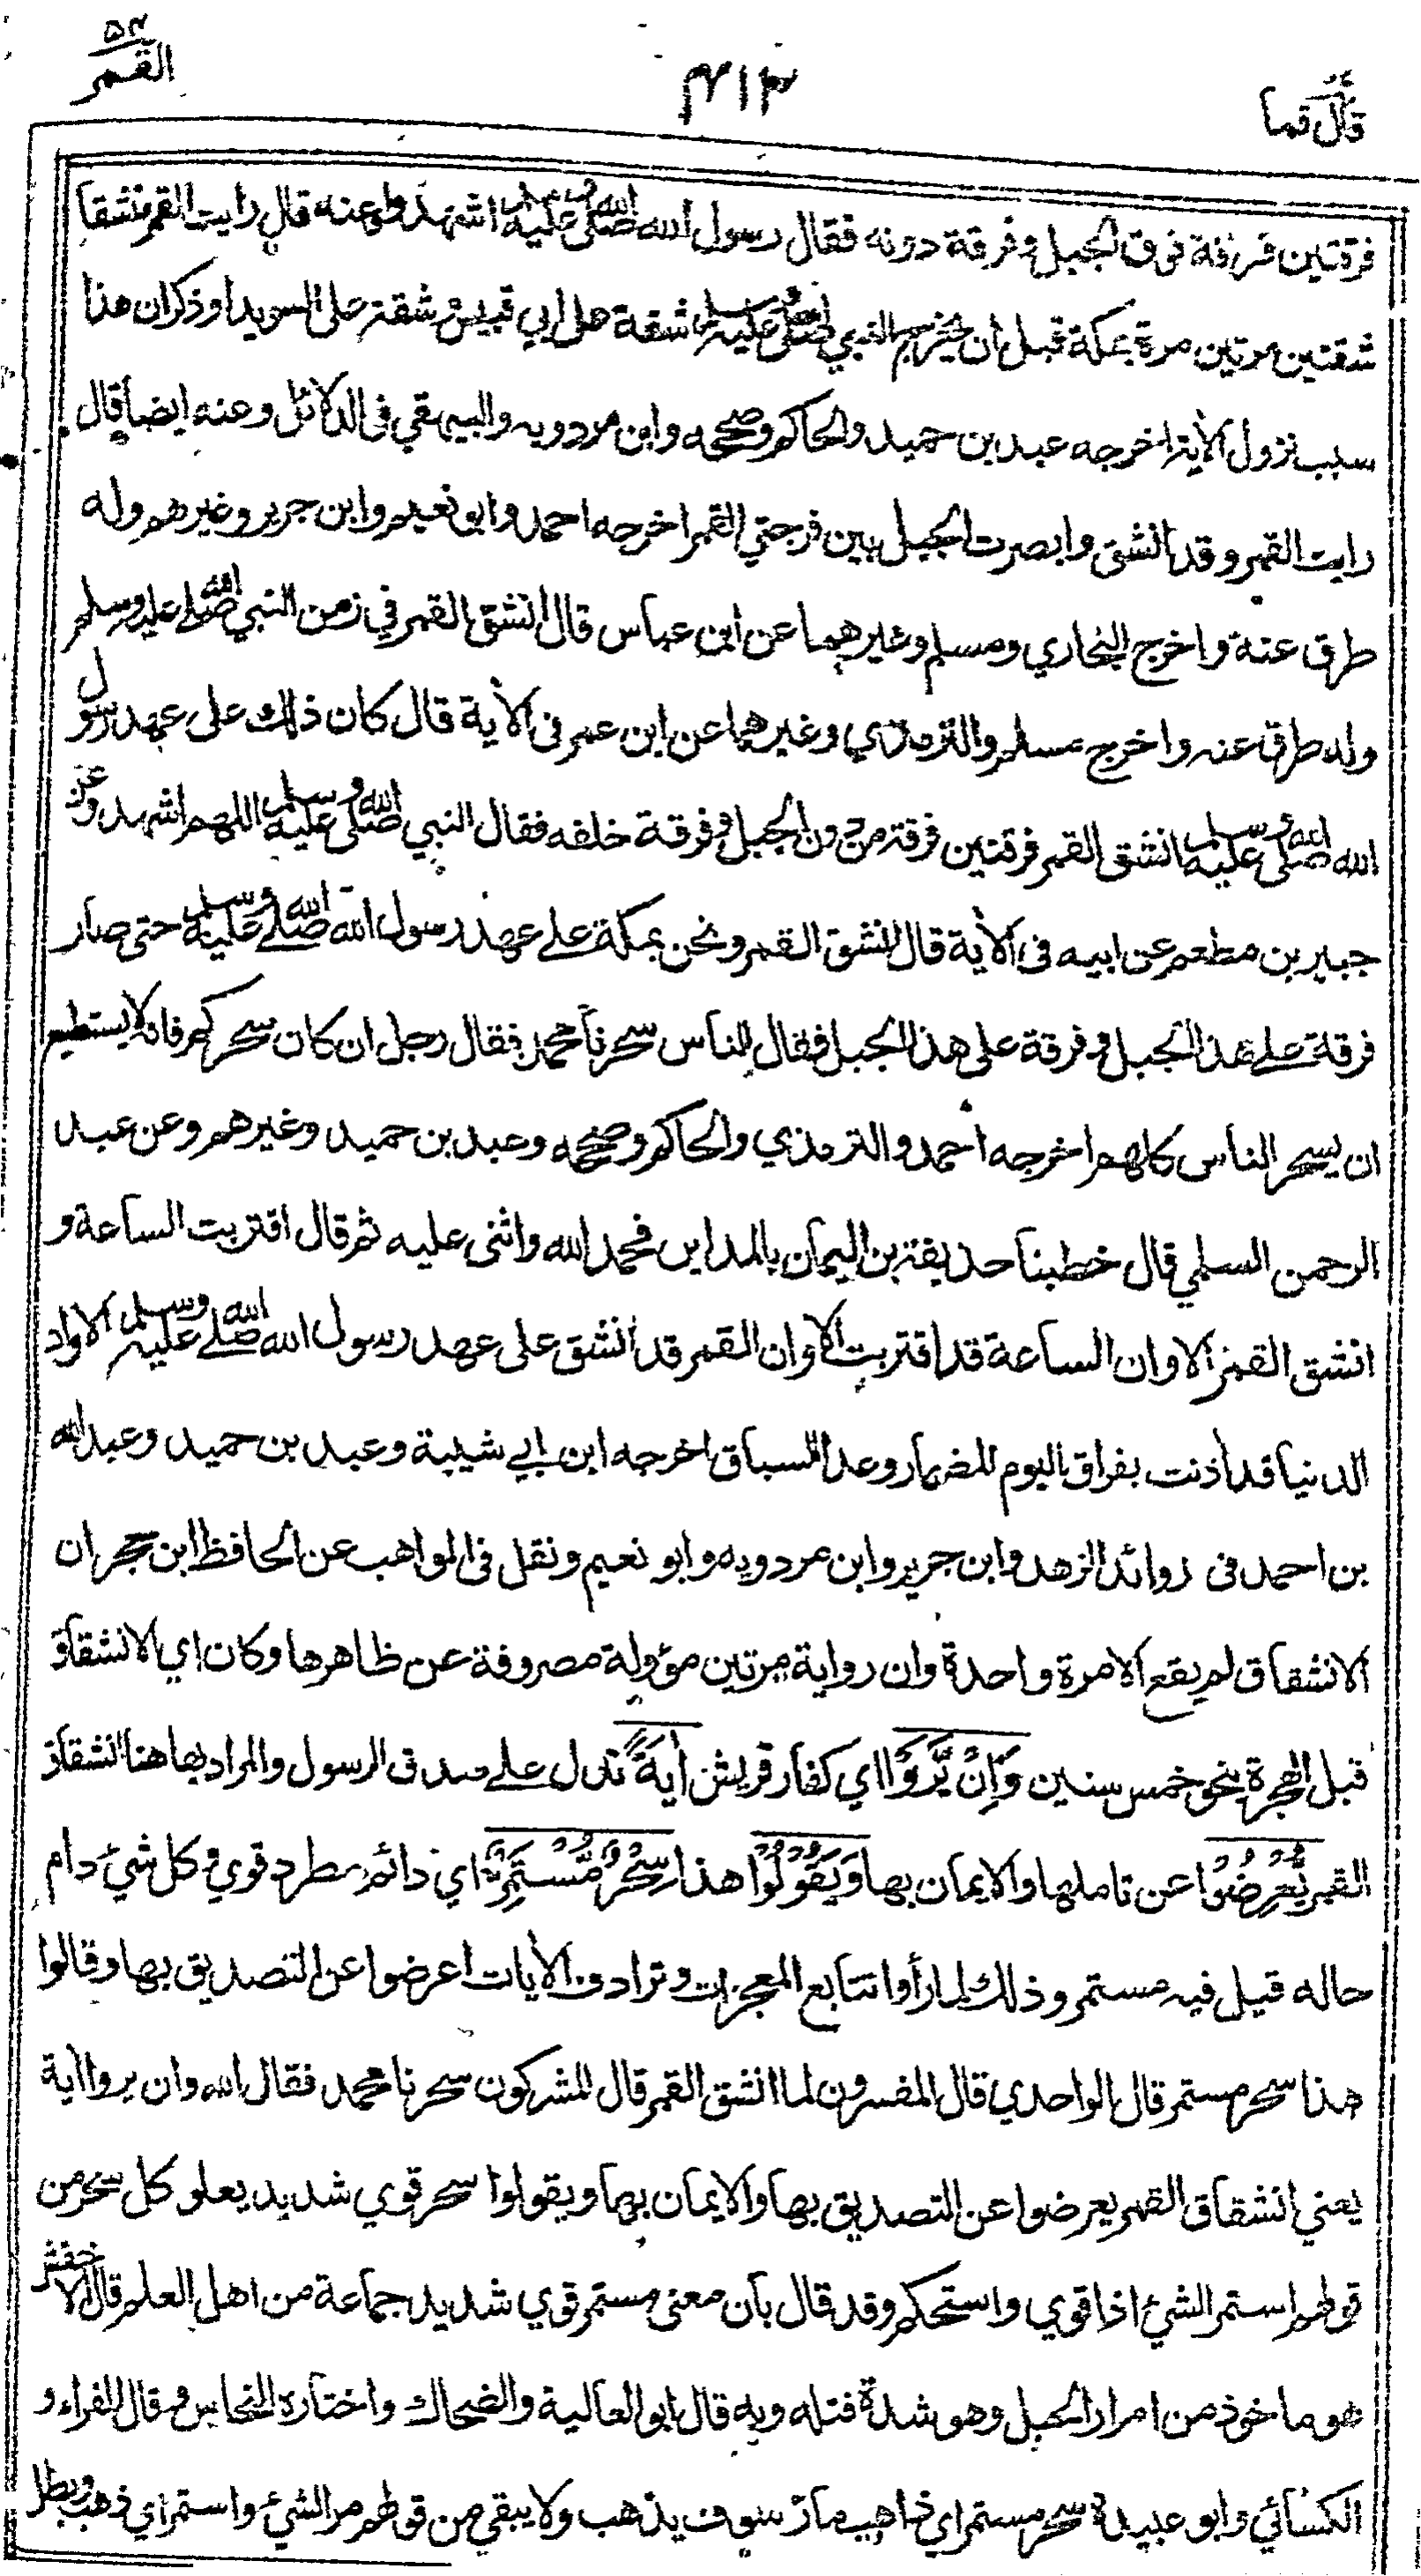 قال فما
٤١٣
٥٤
القمر
فرقتين فرقة فوق الجبل وفرقة دونه فقال رسول الله صلى الله عليه وسلم اشهدوا وعنه قال رايت القمر منشقا
شقتين مرتين مرة بمكة قبل ان يخرج النبي صلى الله عليه وسلم شقة على ابي قبيس وشقة على السويدا وذكر ان هذا
سبب نزول الأية اخرجه عبد بن حميد والحاكم وصححه وابن مردويه والبيهقي فى الدلائل وعنه ايضا قال
رايت القمر وقد انشق وابصرت الجبل بين فرجتي القمر اخرجه احمد وابو نعيم وابن جرير وغيرهم وله
طرق عنه واخرج البخاري ومسلم وغيرهما عن ابن عباس قال انشق القمر في زمن النبي صلى الله عليه وسلم
وله طرق عنه واخرج مسلم والترمذي وغيرهما عن ابن عمر فى الأية قال كان ذلك على عهد رسول
الله صلى الله عليه وسلم انشق القمر فرقتين فرقة من دون الجبل وفرقة خلفه فقال النبي صلى الله عليه وسلم اللهم اشهد وعن
جبير بن مطعم عن ابيه فى الأية قال انشق القمر ونحن بمكة على عهد رسول الله صلى الله عليه وسلم حتى صار
فرقة على هذا الجبل وفرقة على هذا الجبل فقال الناس سحرنا محمد فقال رجل ان كان سحركم فانه لا يستطيع
ان يسحر الناس كلهم اخرجه احمد والترمذي والحاكم وصححه وعبد بن حميد وغيرهم وعن عبد
الرحمن السلمي قال خطبنا حذيفة بن اليمان بالمداين فحمد الله واثنى عليه ثم قال اقتربت الساعة و
انشق القمر الا وان الساعة قد اقتربت الا وان القمر قد انشق على عهد رسول الله صلى الله عليه وسلم الا وان
الدنيا قد أذنت بفراق اليوم المضمار وغدا السباق اخرجه ابن ابي شيبة وعبد بن حميد وعبد الله
بن احمد فى زوائد الزهد وابن جرير وابن مردويه وابو نعيم ونقل فى المواهب عن الحافظ ابن حجر ان
الانشقاق لم يقع الا مرة واحدة وان رواية مرتين مؤولة مصروفة عن ظاهرها وكان اي الانشقاق
قبل الهجرة بنحو خمس سنين وَإِنْ يَّرَوْا اي كفار قريش أيَةً تدل على صدق الرسول والمراد بها هنا انشقاق
القمر يُّعْرِضُوْا عن تاملها والايمان بها وَيَقُوْلُوْا هذا سِحْرٌ مُّسْتَمِرٌّ اي دائم مطرد قوي وكل شيئ دام
حاله قيل فيه مستمر وذلك لما رأوا تتابع المعجزات وترادف الأيات اعرضوا عن التصديق بها وقالوا
هذا سحر مستمر قال الواحدي قال المفسرون لما انشق القمر قال المشركون سحرنا محمد فقال الله وان يروا اية
يعني انشقاق القمر يعرضوا عن التصديق بها والايمان بها ويقولوا سحر قوي شديد يعلو كل سحر من
قولهم استمر الشئ اذا قوي واستحكم وقد قال بأن معنى مستمر قوي شديد جماعة من اهل العلم قال الاخفش
هو ماخوذ من امرار الحبل وهو شدة فتله وبه قال ابو العالية والضحاك واختاره النحاس وقال الفراء و
الكسائي وابو عبيدة سحر مستمر اي ذاهب مار سوف يذهب ولا يبقى من قولهم مر الشئ واستمر اي ذهب وبطل